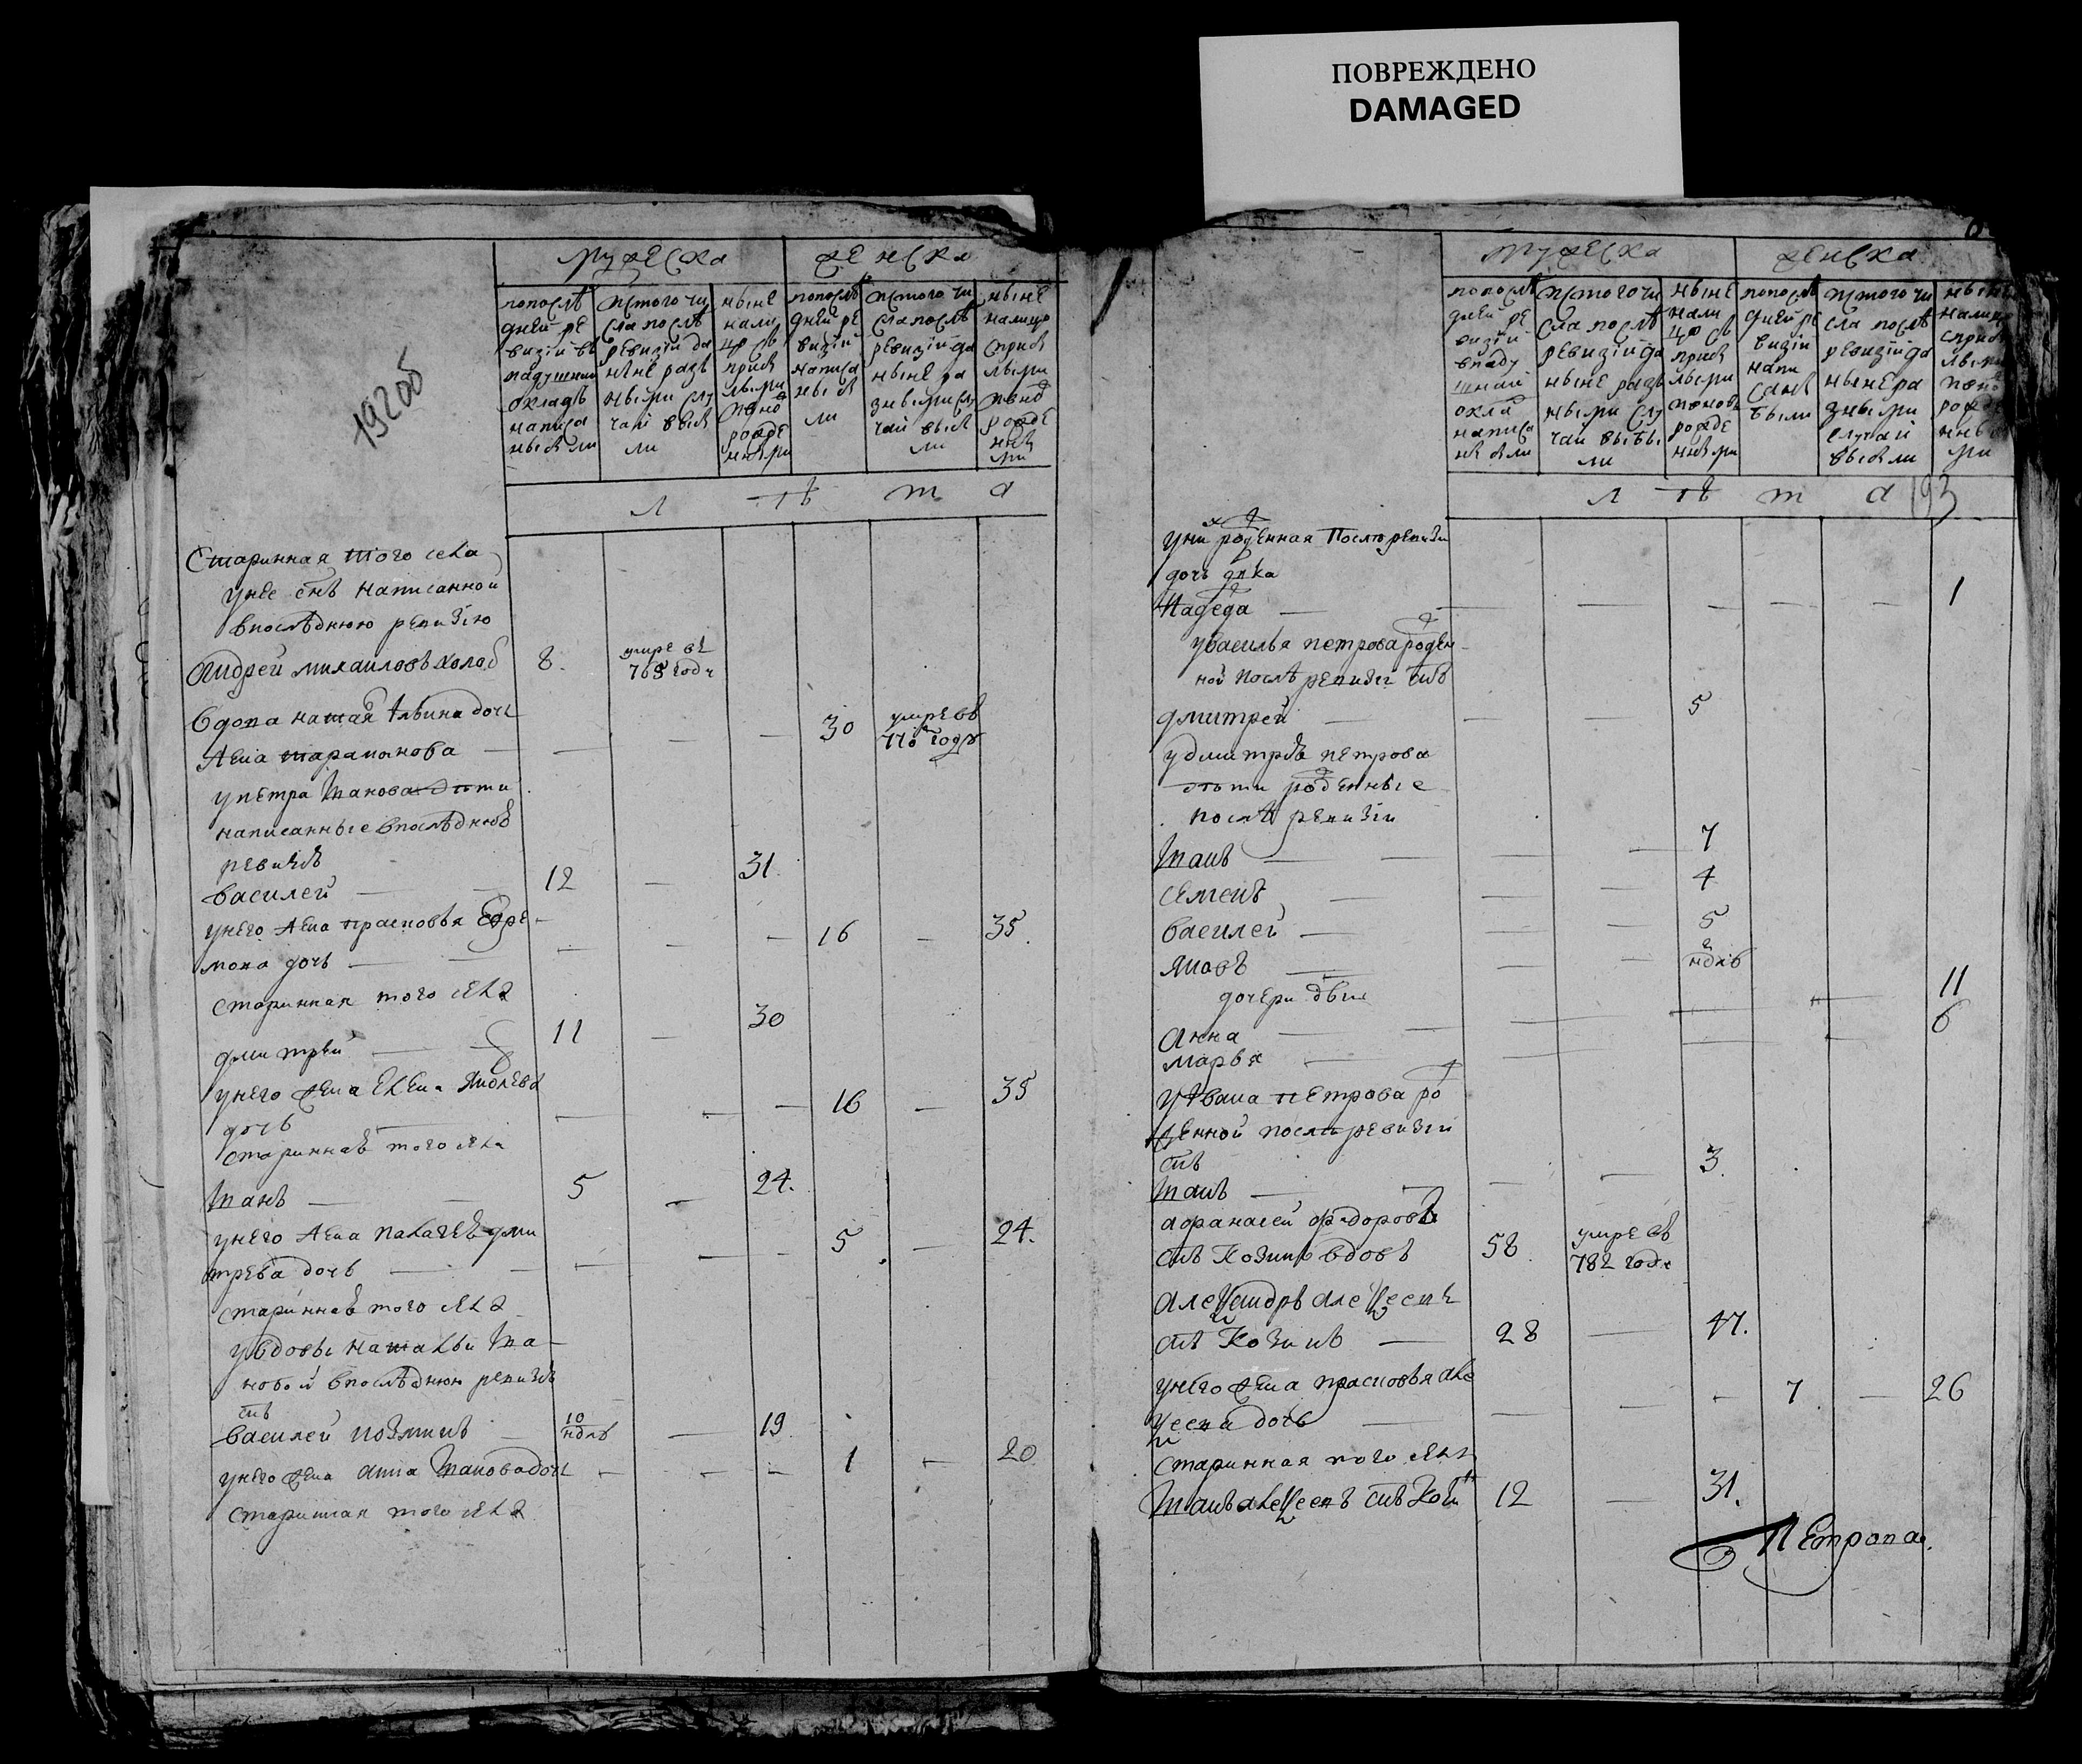 ПОВРЕЖДЕНО
DAMAGED
192об
мужеска женска
попослѣ
дней ре
визіи въ
падушный
окладъ
написа
ны были
истого чи
сла послѣ
ревизіи до
ныне разъ
ными слу
чаи выбы
ли
ныне
нали
цо съ
прибы
лыми
попослѣ
дней ре
визіи
написа
ны бы
ли
истого чи
сла послѣ
ревизіи до
ныне ра
зными слу
чаи выбы
ли
ныне
налицо
сприбы
лыми
л ѣ т а
Старинная того села
унее снъ написанной
впослѣднюю ревизію
Андрей михаиловъ 8. умре въ
769 годѣ
вдова наталья дочь 30 умре въ
770 годѣ
жена
упетра дети
написанные впослѣднюю
ревизію
василей — 12 — 31
унего жена прасковья Ефре
мова дочь — — — — 16 — 35.
старинная того села
дмитрей — 11 — 30
унего жена елена Яковлева
дочь — — — — 16 — 35
старинная того села
Иванъ — — 5 — 24.
унего жена пелагея дми
трева дочь — — — — 5 — 24.
старинная того села
увдовы натальи Ива
новой впослѣднюю ревизію
снъ
василей козминъ — 10
ндль — 19
унего жена анна Иванова дочь — — — 1 — 20
старинная того села
мужеска женска
попослѣ
дней ре
визіи
впаду
шнай
оклад
написа
ны были
истого чи
сла послѣ
ревизіи до
ныне разъ
ными слу
чаи выбы
ли
ныне
нали
цо съ
прибы
лыми
ивновь
рожде
нными
попослѣ
дней ре
визіи
напи
саны
были
истого чи
сла послѣ
ревизіи до
ныне ра
зными
случаи
выбыли
л ѣ т а 193
уних рожденная Послѣ ревизіи
дочь девка
Надежда — — — — — — 1
увасилья петрова рожден
ной послѣ ревизіи снъ
дмитрей — — — 5
удмитрея петрова
дѣти рожденные
послѣ ревизіи
Иванъ — — — — 7
семенъ — — — 4
василей — — — 5
яковъ — — — ндль
дочери двѣ
Анна — — — — — — 11
марья — — — — — 6
уИвана петрова ро
жденной послѣ ревизіи
снъ
Иванъ — — — — 3.
афанасей федоровъ
снъ Козминъ вдовъ 58. умре въ
782 годѣ
александръ алексеевъ
снъ Козминъ — 28 — 47.
унего жена прасковья але
ксеева дочь — — — — 7. — 26
старинная того села
Иванъ алексеевъ снъ 12 — 31.
Петрова